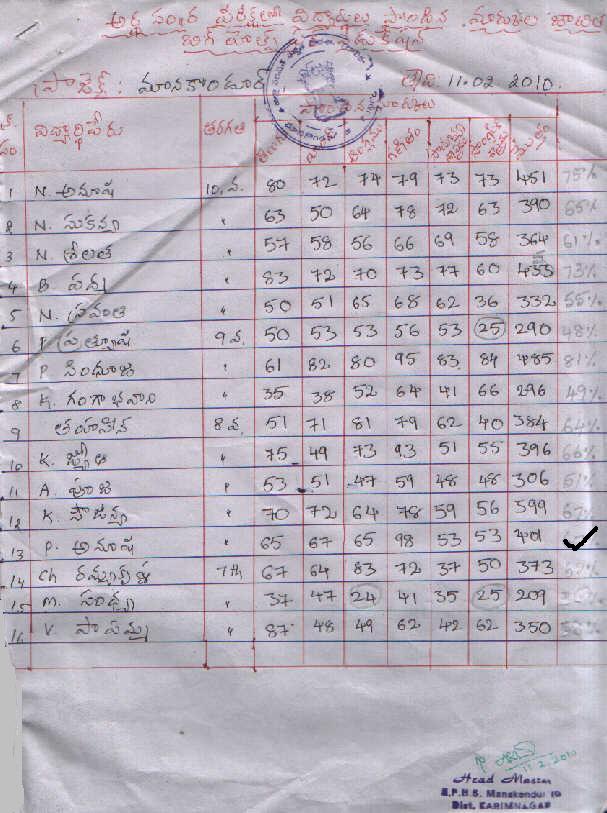 అర్థ సంవత్సర పరీక్షలలో విద్యార్థులు సాధించిన మార్కుల జాబితా
ప్రాజెక్ట్ : మానకొండూర్ తేది: 11.02 2010.
సాధించిన మార్కులు
విద్యార్థి పేరు తరగతి తెలుగు హిందీ ఇంగ్లీషు గణితం మొత్తం
1 N. అనూష 10.వ. 80 72 74 79 73 73 451 75%
2 N. సుకన్య " 63 50 64 78 72 63 390 65%
3 N. శ్రీలత " 57 58 56 66 69 58 364 61%
4 B. " 83 72 70 73 77 60 433 73%
5 N. స్రవంతి " 50 51 65 68 62 36 332 55%
6 P ప్రత్యూష 9వ. 50 53 53 56 53 25 290 48%
7 P. సింధూజ " 61 82 80 95 83 84 485 81%
8 K. గంగాభవాని " 35 38 52 64 41 66 296 49%
9 తహసీన 8వ. 51 71 81 79 62 40 384 64%
10 K. జ్యోతి " 75 49 73 93 51 55 396 66%
11 A. పూజ " 53 51 47 59 48 48 306 51%
12 K. సౌజన్య " 70 72 64 78 59 56 399 67%
13 P. అనూష " 65 67 65 98 53 53 401
14 Ch 7th 67 64 83 72 37 50 373 62%
15 M. సంధ్య " 37 47 24 41 35 25 209
16 V. " 87 48 49 62 42 62 350
11.2.2010
Head Master
Z.P.H.S. Manakondur
Dist. KARIMNAGAR